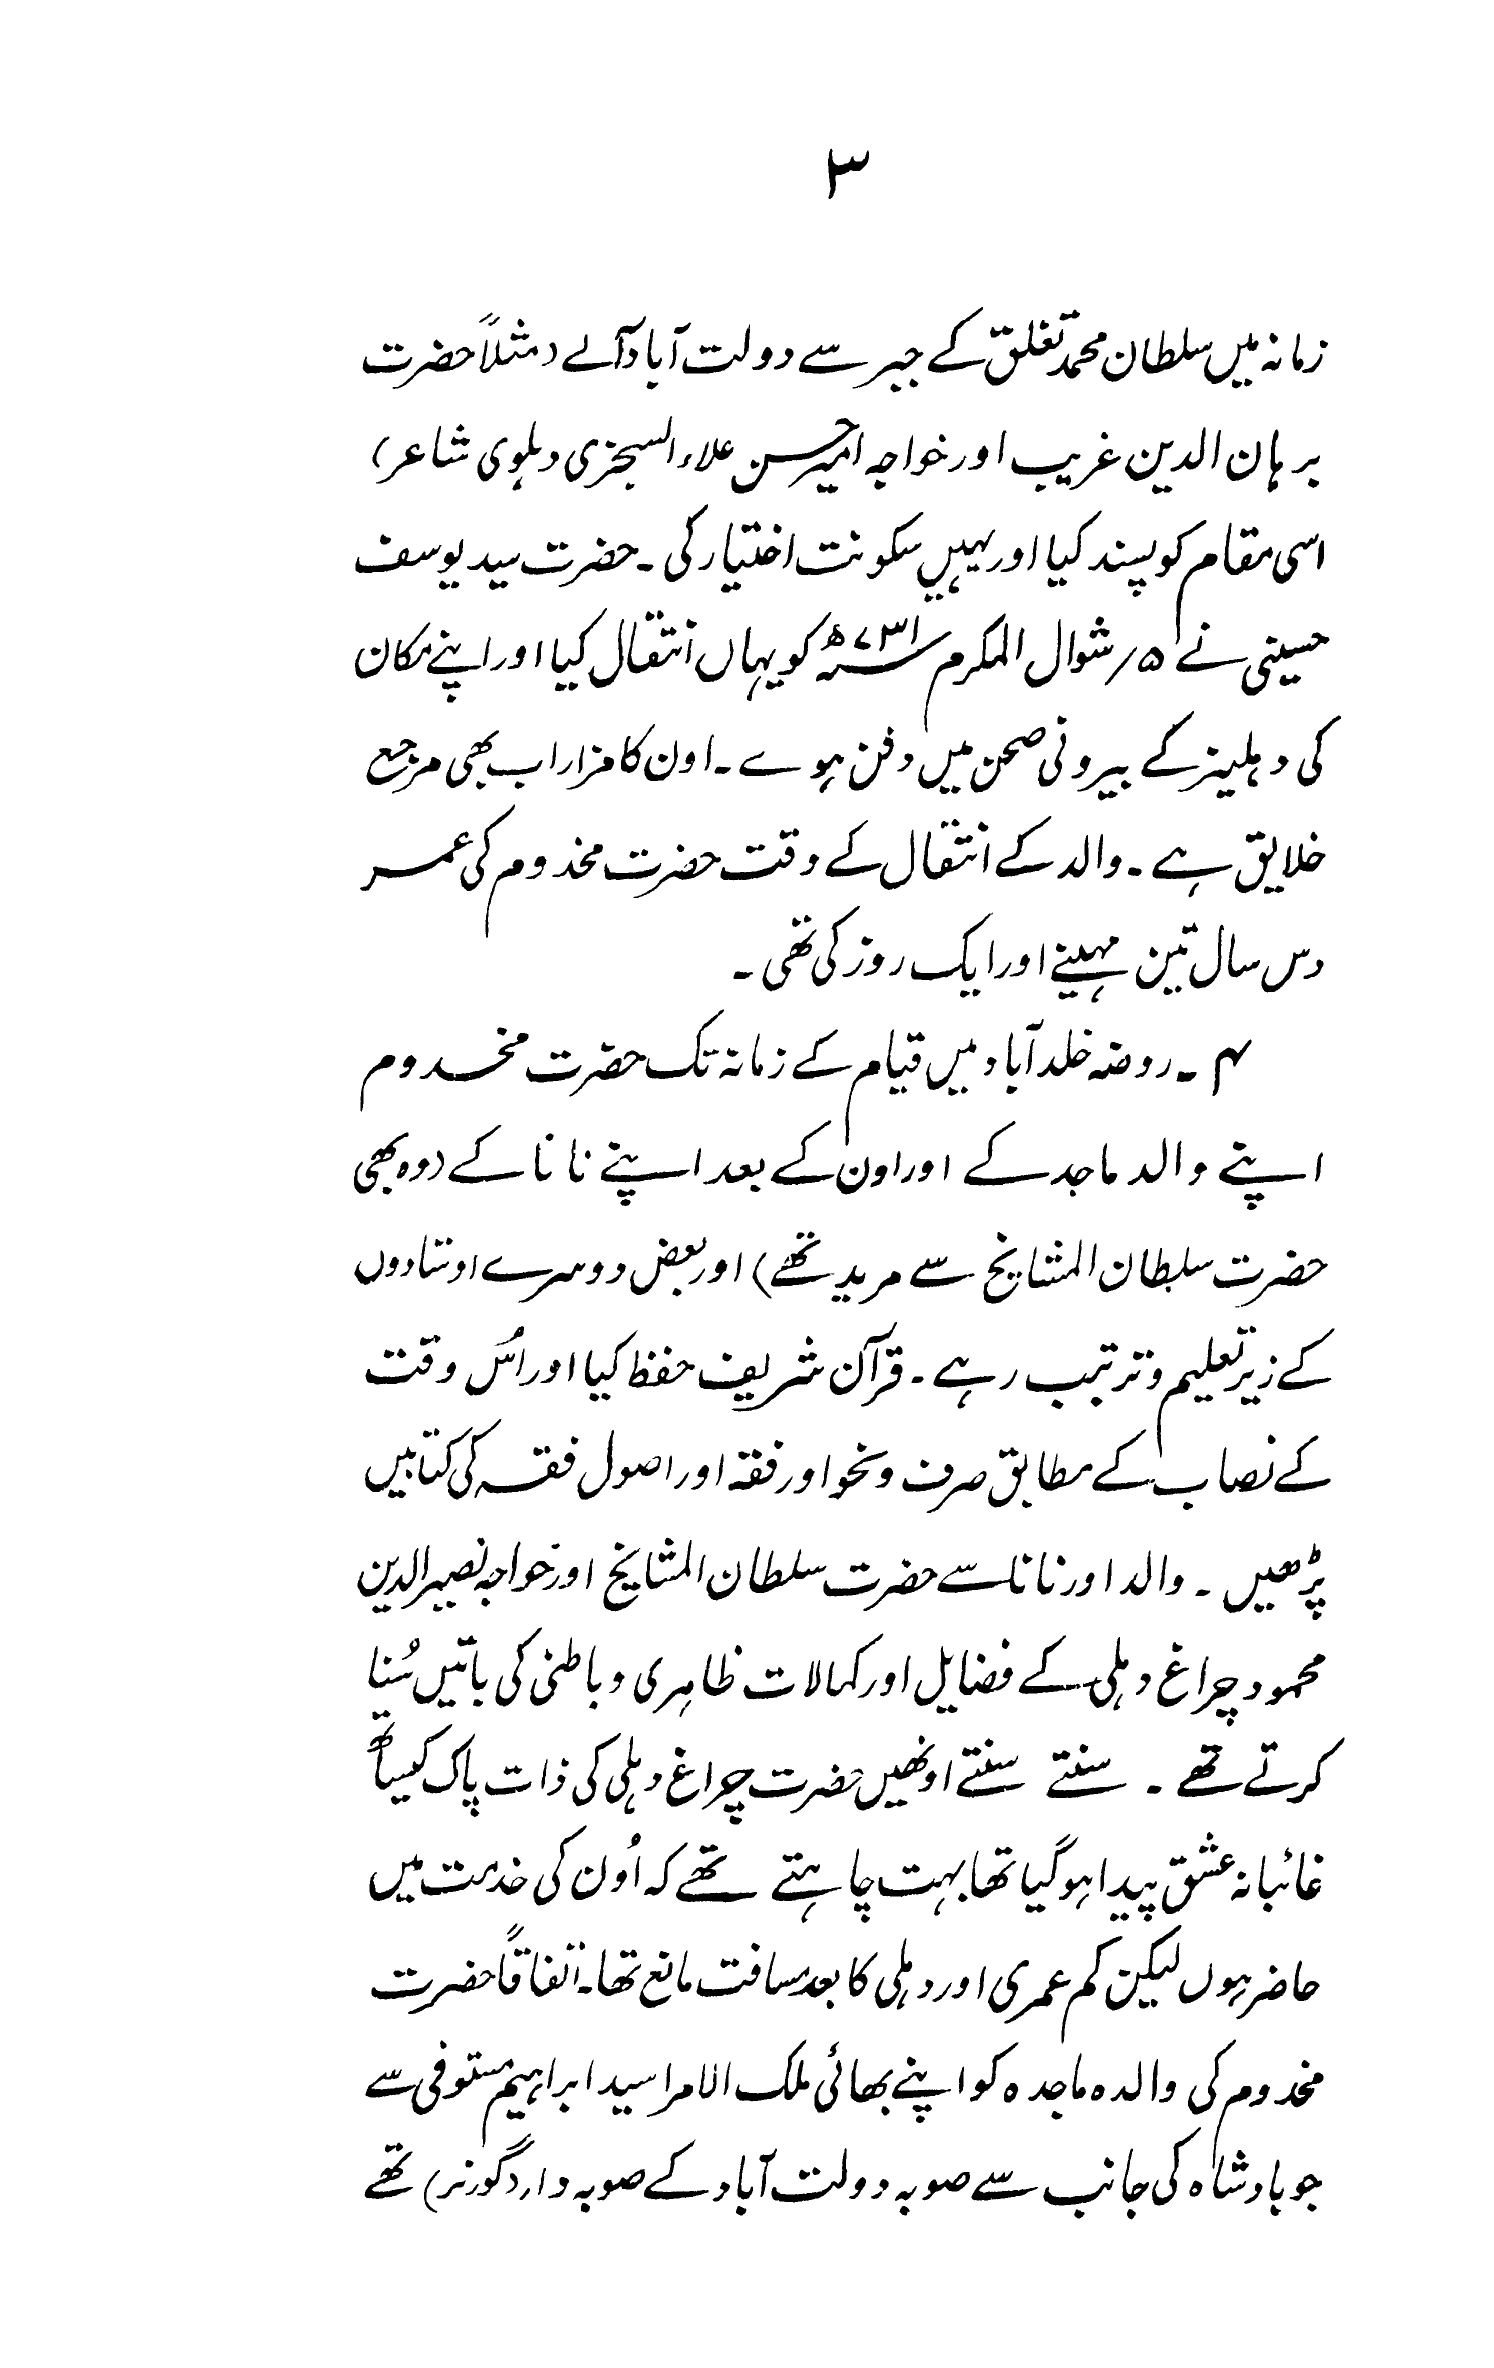 ۳
زمانہ میں سلطان محمد تغلق کے جبر سے دولت آباد آئے (مثلاً حضرت
برہان الدین غریب اور خواجہ امیر حسن علاء السجزی دہلوی شاعر)
اسی مقام کو پسند کیا اور یہیں سکونت اختیار کی ۔ حضرت سید یوسف
حسینی نے ۵؍ شوال المکرم ۷۳۱ھ؁ کو یہاں انتقال کیا اور اپنے مکان
کی دہلیز کے بیرونی صحن میں دفن ہوے ۔ اون کا مزار اب بھی مرجع
خلایق ہے ۔ والد کے انتقال کے وقت حضرت مخدوم کی عمر
دس سال تین مہینے اور ایک روز کی تھی ۔
۴ ۔ روضہ خلد آباد میں قیام کے زمانہ تک حضرت مخدوم
اپنے والد ماجد کے اور اون کے بعد اپنے نانا کے (وہ بھی
حضرت سلطان المشایخ سے مرید تھے) اور بعض دوسرے اوستادوں
کے زیر تعلیم و تربیت رہے ۔ قرآن شریف حفظ کیا اور اُس وقت
کے نصاب کے مطابق صرف و نحو اور فقہ اور اصول فقہ کی کتابیں
پڑھیں ۔ والد اور نانا سے حضرت سلطان المشایخ اور خواجہ نصیر الدین
محمود چراغ دہلی کے فضایل اور کمالات ظاہری و باطنی کی باتیں سُنا
کرتے تھے ۔ سنتے سنتے اونھیں حضرت چراغ دہلی کی ذات پاک کیساتھ
غائبانہ عشق پیدا ہو گیا تھا بہت چاہتے تھے کہ اُون کی خدمت میں
حاضر ہوں لیکن کم عمری اور دہلی کا بعد مسافت مانع تھا ۔ اتفاقاً حضرت
مخدوم کی والدہ ماجدہ کو اپنے بھائی ملک الامرا سید ابراہیم مستوفی سے
جو بادشاہ کی جانب سے صوبہ دولت آباد کے صوبہ دار (گورنر) تھے